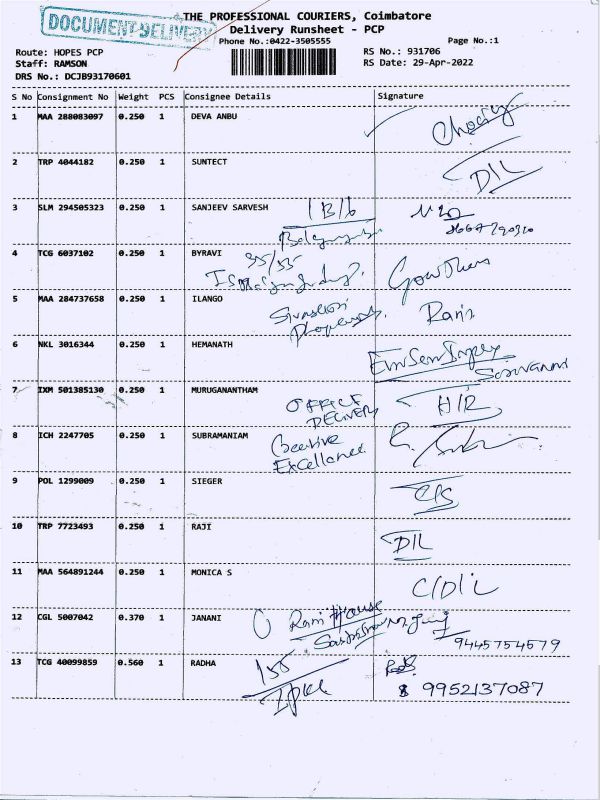 DOCUMENT DELIVERY
THE PROFESSIONAL COURIERS, Coimbatore
Delivery Runsheet - PCP
Phone No.:0422-3505555 Page No.:1
Route: HOPES PCP RS No.: 931706
Staff: RAMSON RS Date: 29-Apr-2022
DRS No.: DCJB93170601
S No Consignment No Weight PCS Consignee Details Signature
1 MAA 288083097 0.250 1 DEVA ANBU
2 TRP 4044182 0.250 1 SUNTECT D/L
3 SLM 294505323 0.250 1 SANJEEV SARVESH 1 B/6
4 TCG 6037102 0.250 1 BYRAVI 35/55
5 MAA 284737658 0.250 1 ILANGO
6 NKL 3016344 0.250 1 HEMANATH
7 IXM 501385130 0.250 1 MURUGANANTHAM OFFICE DELIVERY H/R
8 ICH 2247705 0.250 1 SUBRAMANIAM Creative Excellence
9 POL 1299009 0.250 1 SIEGER C/S
10 TRP 7723493 0.250 1 RAJI D/L
11 MAA 564891244 0.250 1 MONICA S C/D/L
12 CGL 5007042 0.370 1 JANANI Rani House
9445754579
13 TCG 40099859 0.560 1 RADHA 155
9952137087